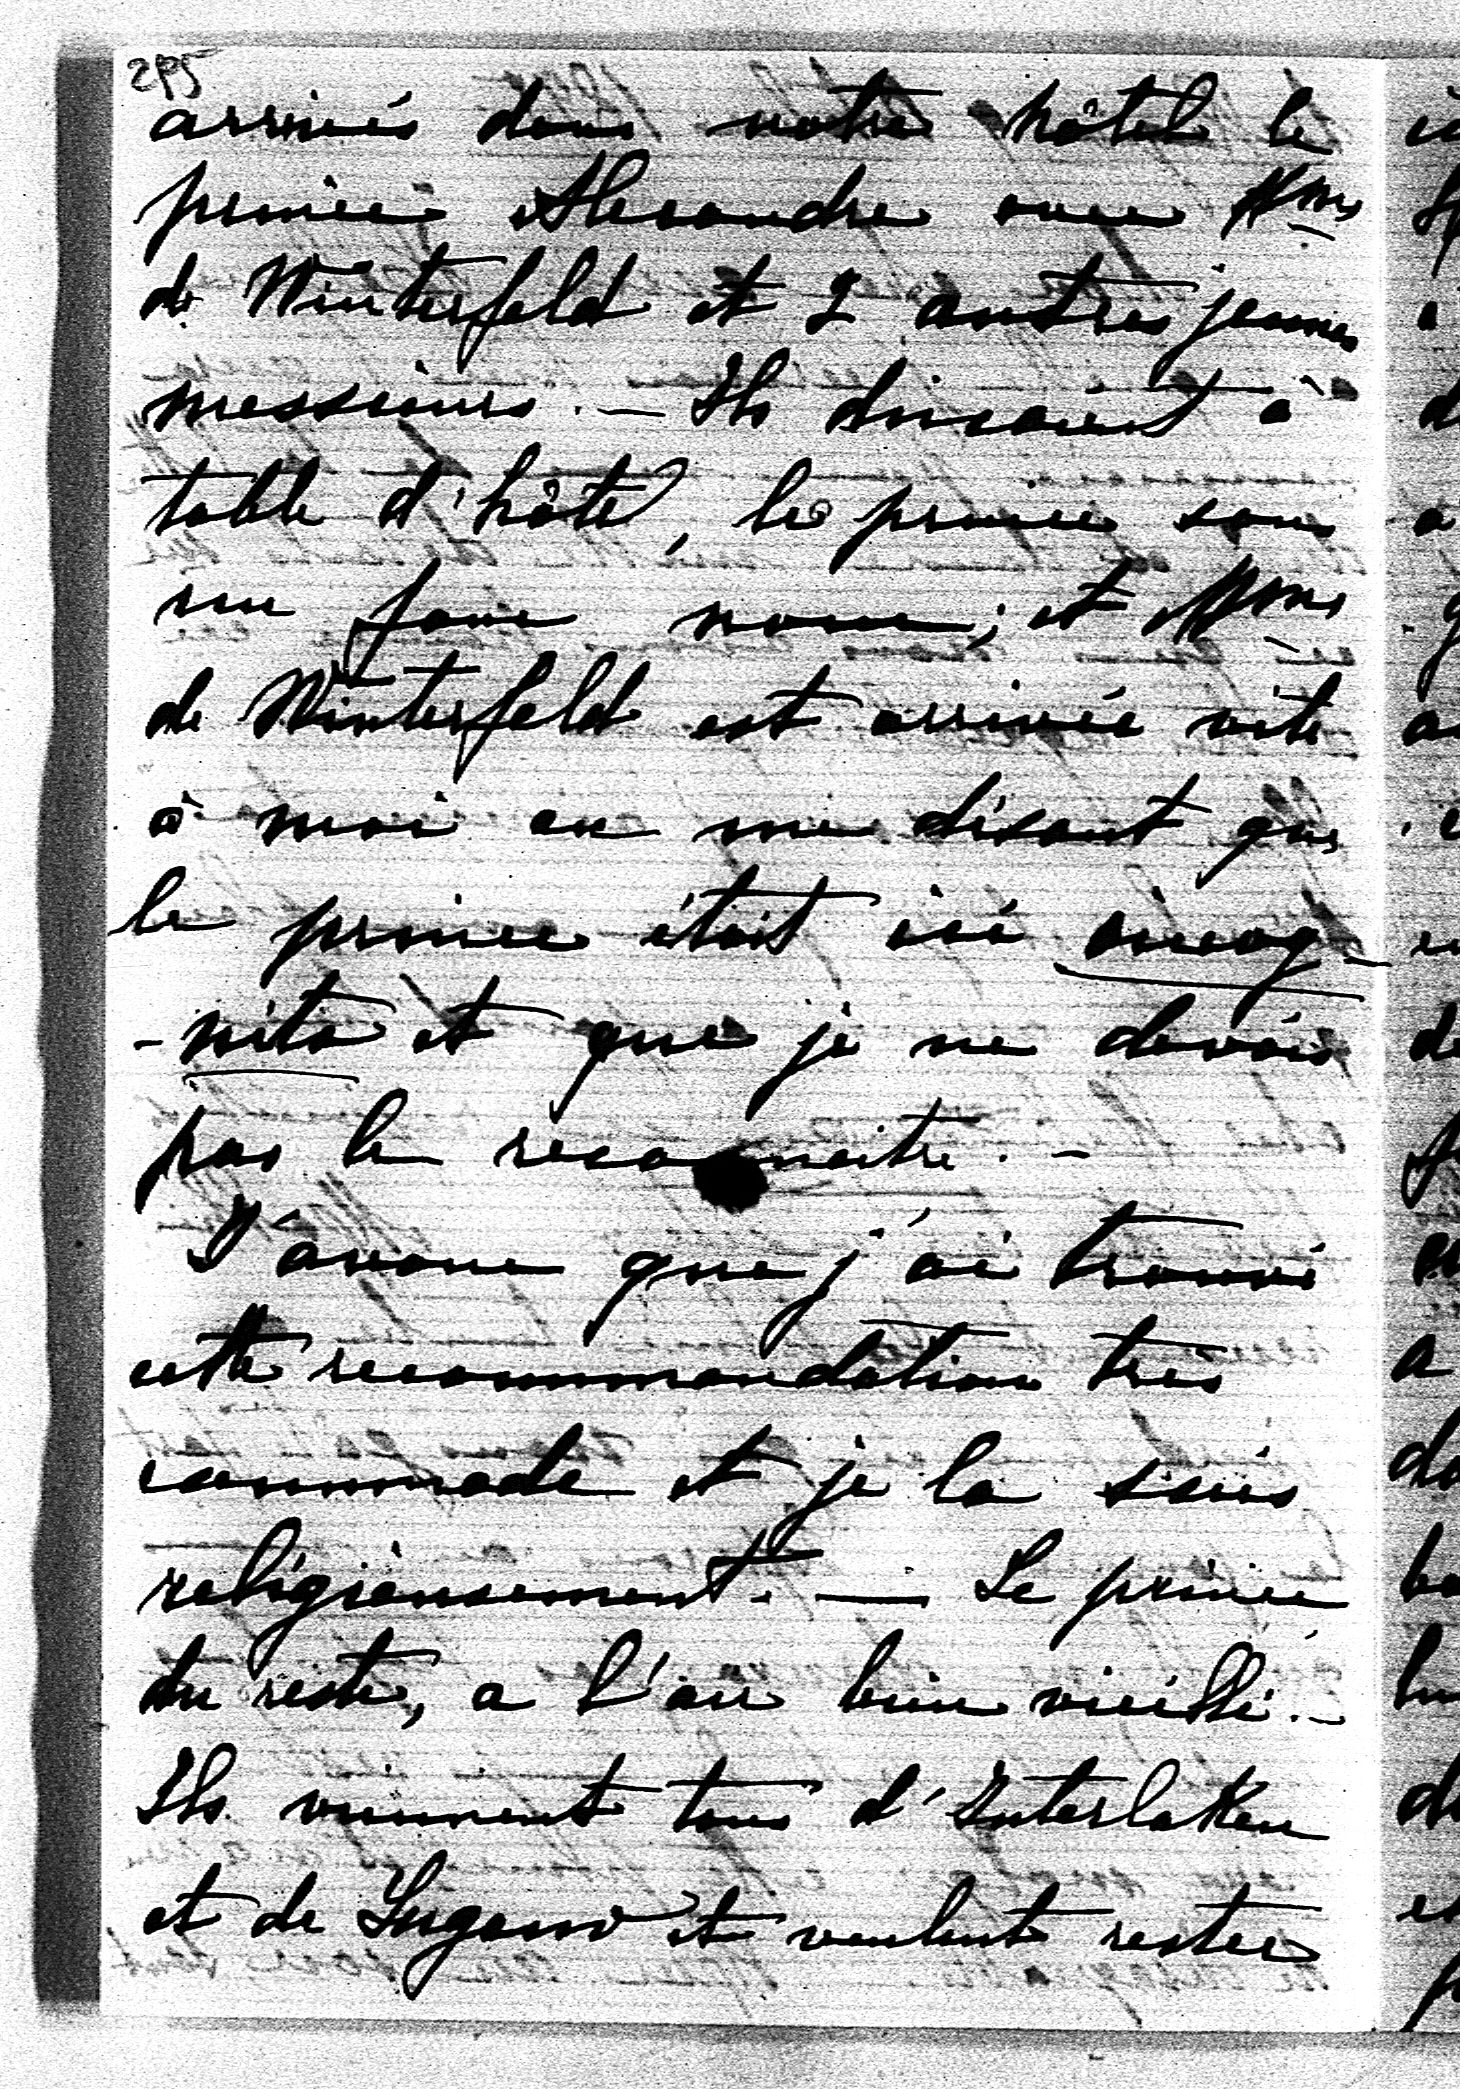 295
arrivés dans notre hôtel le
prince Alexandre avec Mme
de Winterfeld et 2 autres jeunes
messieurs. — Ils dinaient à
table d'hôte, le prince sous
un faux nom; et Mme
de Winterfeld est arrivée vite
à moi en me disant que
le prince était ici incog-
-nito et que je ne devais
pas le reconnaitre. -
J'avoue que j'ai trouvé
cette recommandation très
commode et je la suis
religieusement. — Le prince
du reste, a l'air bien vieilli. -
Ils viennent tous d'Interlaken
et de Lugano et veulent rester